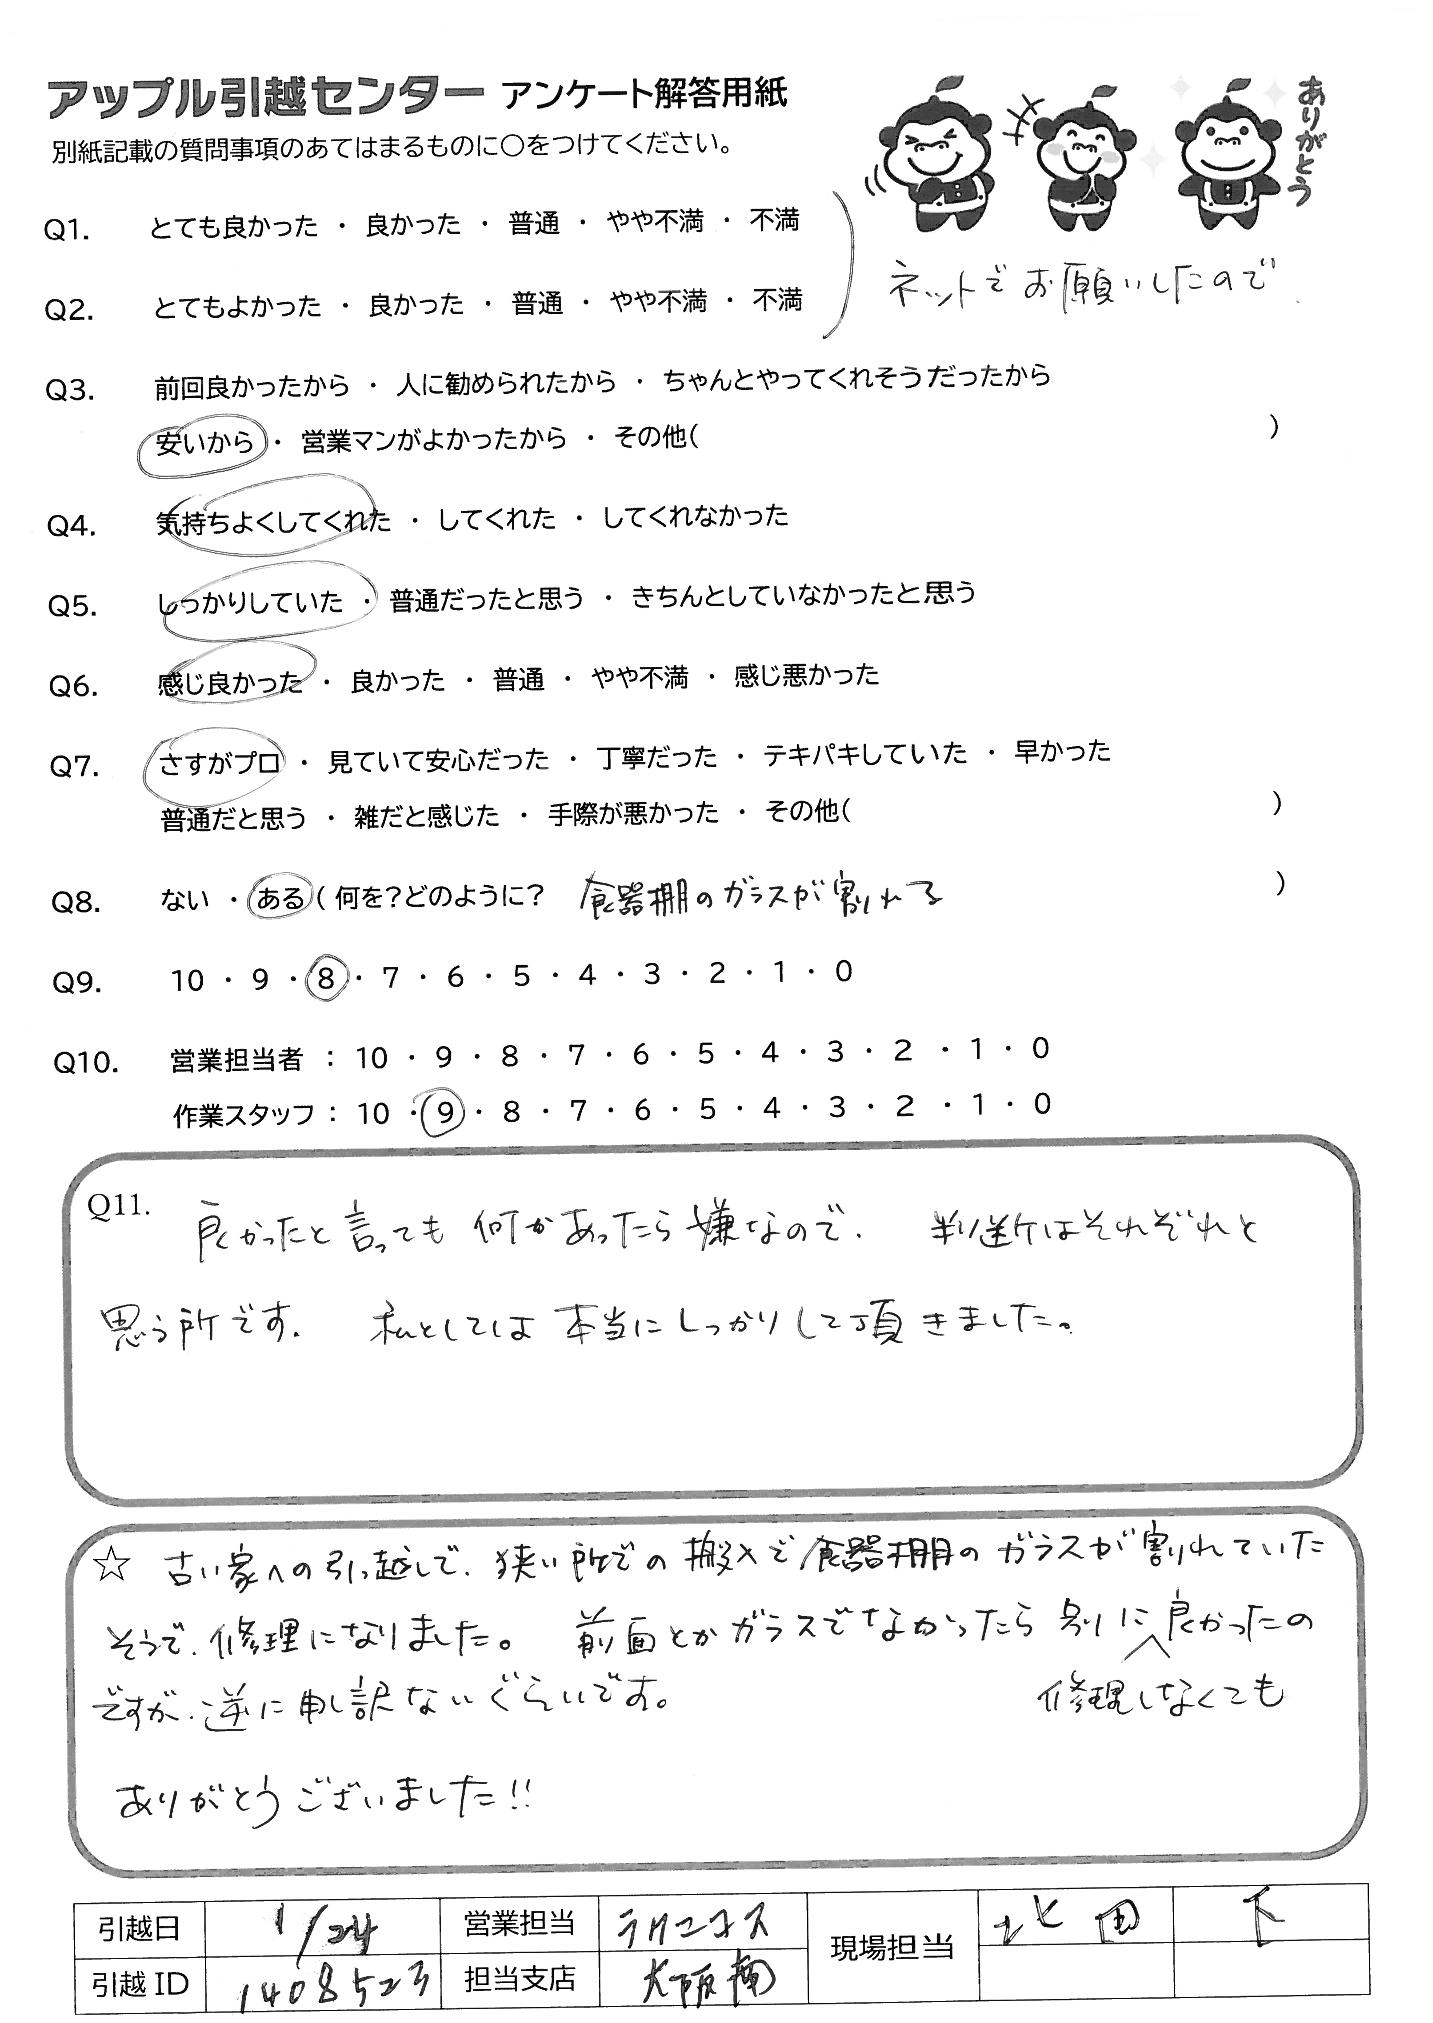 アップル引越センター アンケート解答用紙
別紙記載の質問事項のあてはまるものに○をつけてください。
ありがとう
Q1. とても良かった ・ 良かった ・ 普通 ・ やや不満 ・ 不満
Q2. とてもよかった ・ 良かった ・ 普通 ・ やや不満 ・ 不満
ネットでお願いしたので
Q3. 前回良かったから ・ 人に勧められたから ・ ちゃんとやってくれそうだったから
安いから ・ 営業マンがよかったから ・ その他( )
Q4. 気持ちよくしてくれた ・ してくれた ・ してくれなかった
Q5. しっかりしていた ・ 普通だったと思う ・ きちんとしていなかったと思う
Q6. 感じ良かった ・ 良かった ・ 普通 ・ やや不満 ・ 感じ悪かった
Q7. さすがプロ ・ 見ていて安心だった ・ 丁寧だった ・ テキパキしていた ・ 早かった
普通だと思う ・ 雑だと感じた ・ 手際が悪かった ・ その他( )
Q8. ない ・ ある ( 何を?どのように? 食器棚のガラスが割れる )
Q9. 10 ・ 9 ・ 8 ・ 7 ・ 6 ・ 5 ・ 4 ・ 3 ・ 2 ・ 1 ・ 0
Q10. 営業担当者 : 10 ・ 9 ・ 8 ・ 7 ・ 6 ・ 5 ・ 4 ・ 3 ・ 2 ・ 1 ・ 0
作業スタッフ : 10 ・ 9 ・ 8 ・ 7 ・ 6 ・ 5 ・ 4 ・ 3 ・ 2 ・ 1 ・ 0
Q11. 良かったと言っても何かあったら嫌なので、 判断はそれぞれと
思う所です。 私としては本当にしっかりして頂きました。
☆ 古い家への引っ越しで、狭い所での搬入で食器棚のガラスが割れていた
そうで、修理になりました。 前面とかガラスでなかったら別に良かったの
修理しなくても
ですが、逆に申し訳ないぐらいです。
ありがとうございました!!
引越日 1/24 営業担当 ラクニコス 現場担当 北田 下
引越ID 1408523 担当支店 大阪南